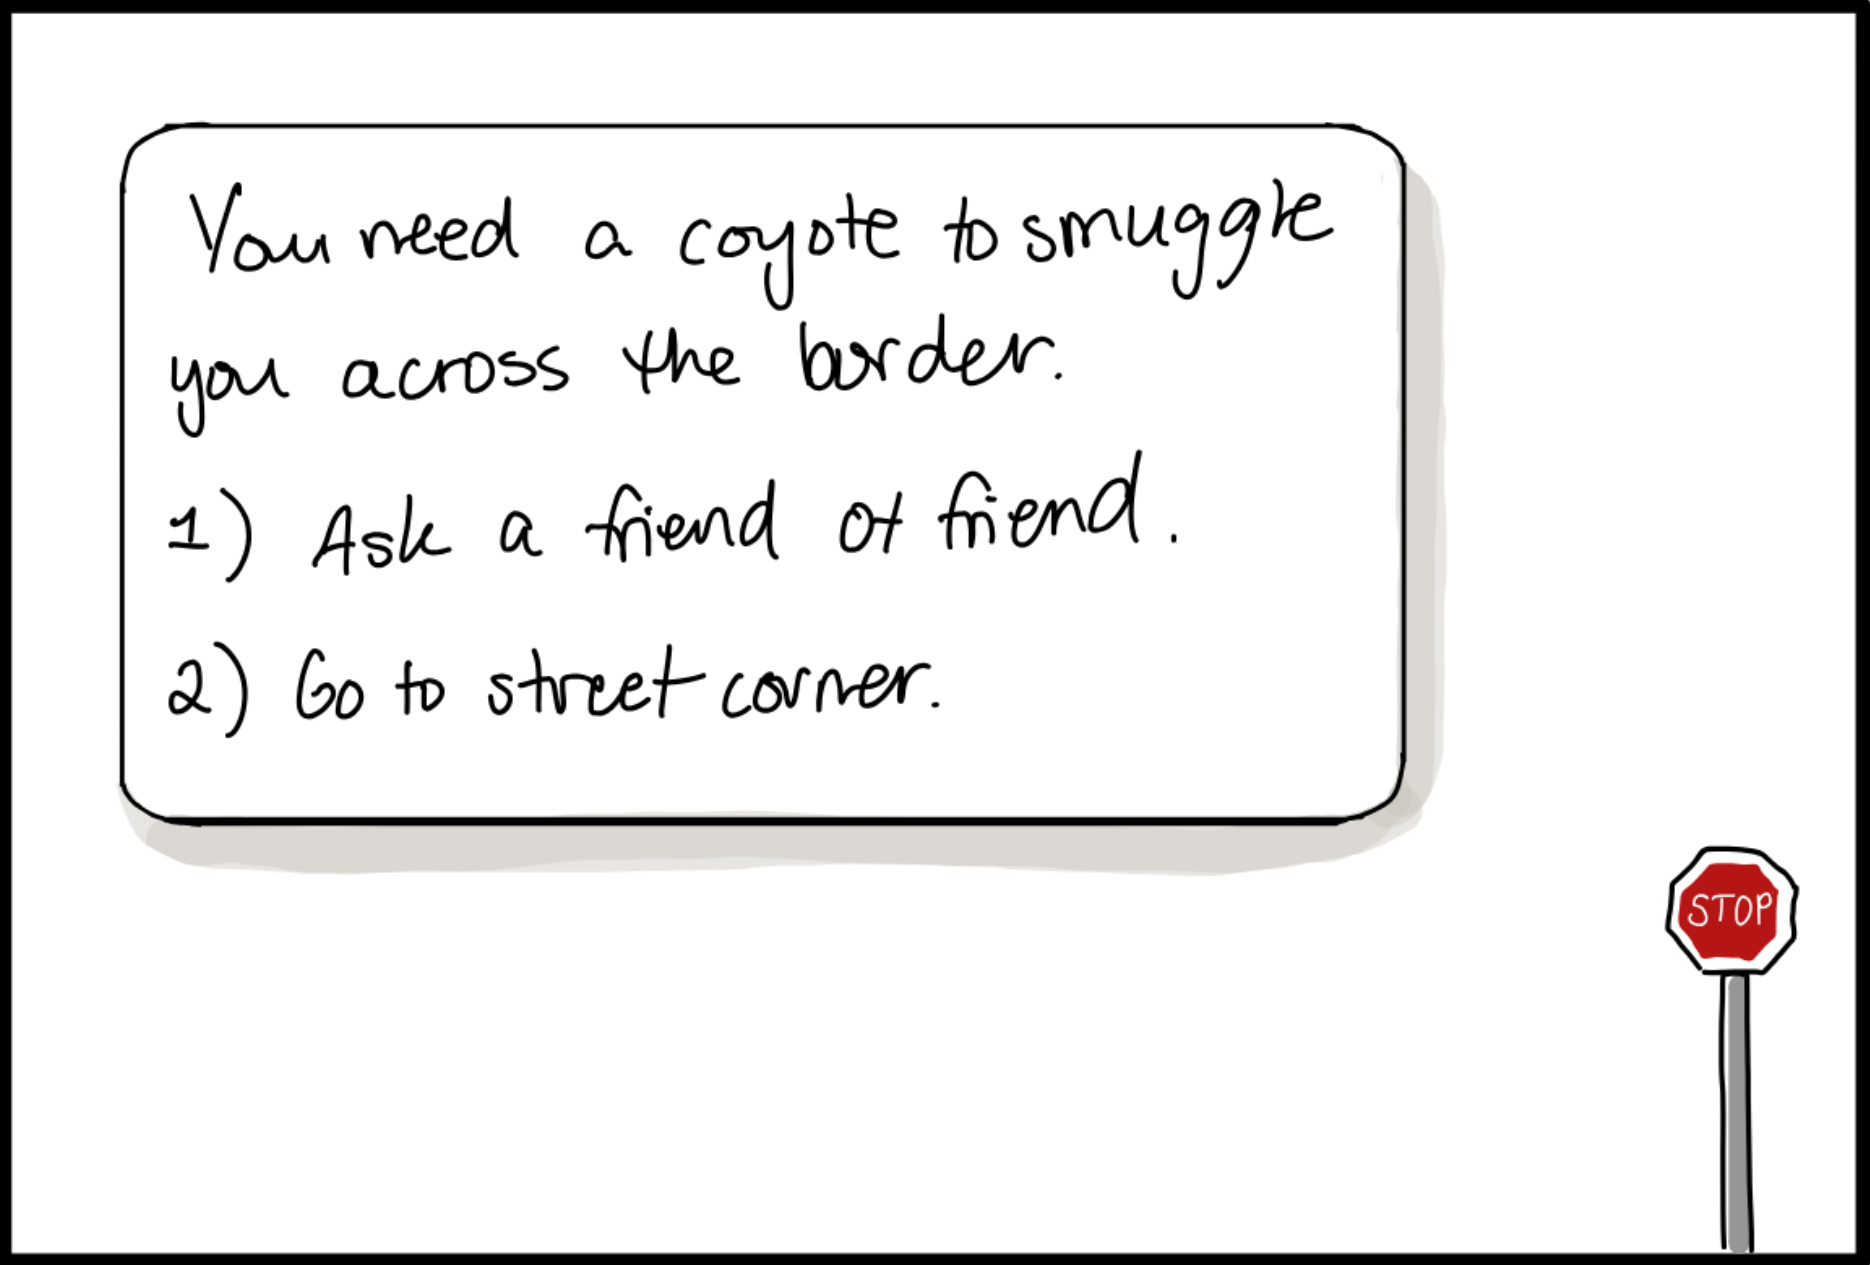 You need a coyote to smuggle
you across the border.
1) Ask a friend of friend.
2) Go to street corner.
STOP